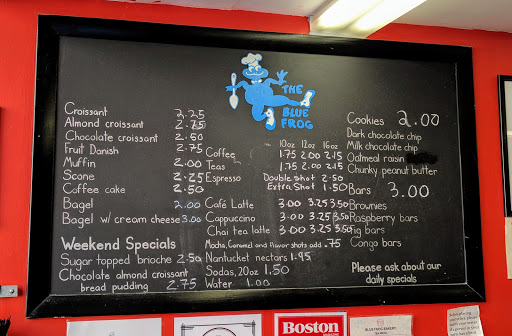 THE
BLUE
FROG
Croissant 2.25
Almond croissant 2.75
Chocolate croissant 2.50
Fruit Danish 2.75
Muffin 2.00
Scone 2.25
Coffee cake 2.50
Bagel 2.00
Bagel w/ cream cheese 3.00
Weekend Specials
Sugar topped brioche 2.50
Chocolate almond croissant
bread pudding 2.75
10oz 12oz 16oz
Coffee 1.75 2.00 2.15
Teas 1.75 2.00 2.15
Espresso Double shot 2.50
Extra Shot 1.50
Café Latte 3.00 3.25 3.50
Cappuccino 3.00 3.25 3.50
Chai tea latte 3.00 3.25 3.50
Mocha, Caramel and flavor shots add .75
Nantucket nectars 1.95
Sodas, 20oz 1.50
Water 1.00
Cookies 2.00
Dark chocolate chip
Milk chocolate chip
Oatmeal raisin
Chunky peanut butter
Bars 3.00
Brownies
Raspberry bars
Fig bars
Congo bars
Please ask about our
daily specials
Boston
BLUE FROG BAKERY